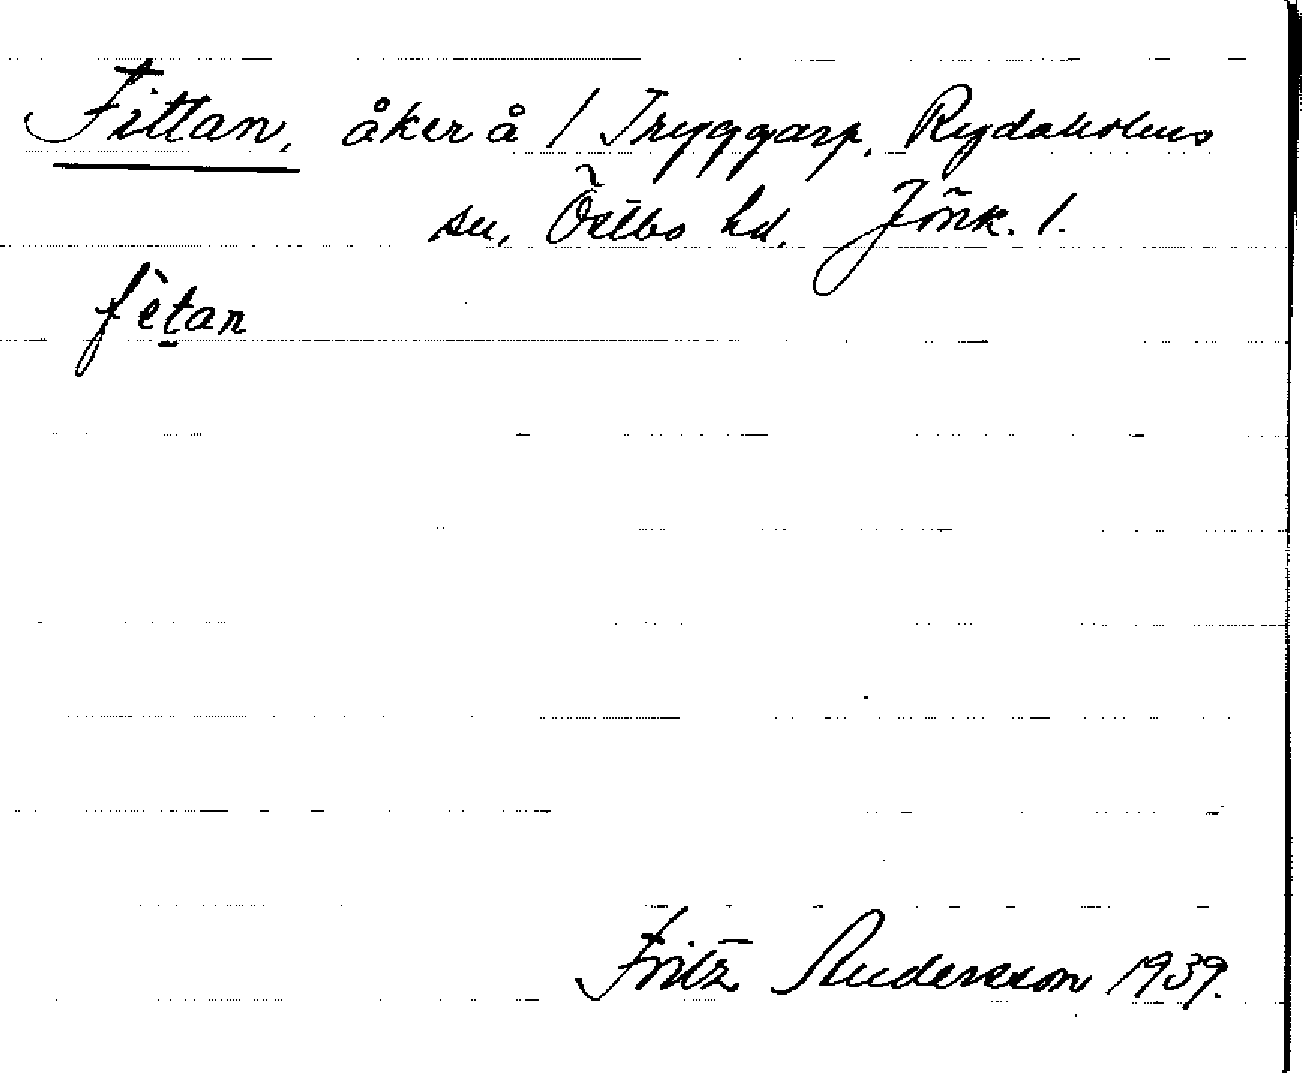 Fittan, åker å / Tryggarp, Rydaholms
sn, Östbo hd. Jönk. l.
fètan
Fritz Andersson 1939.